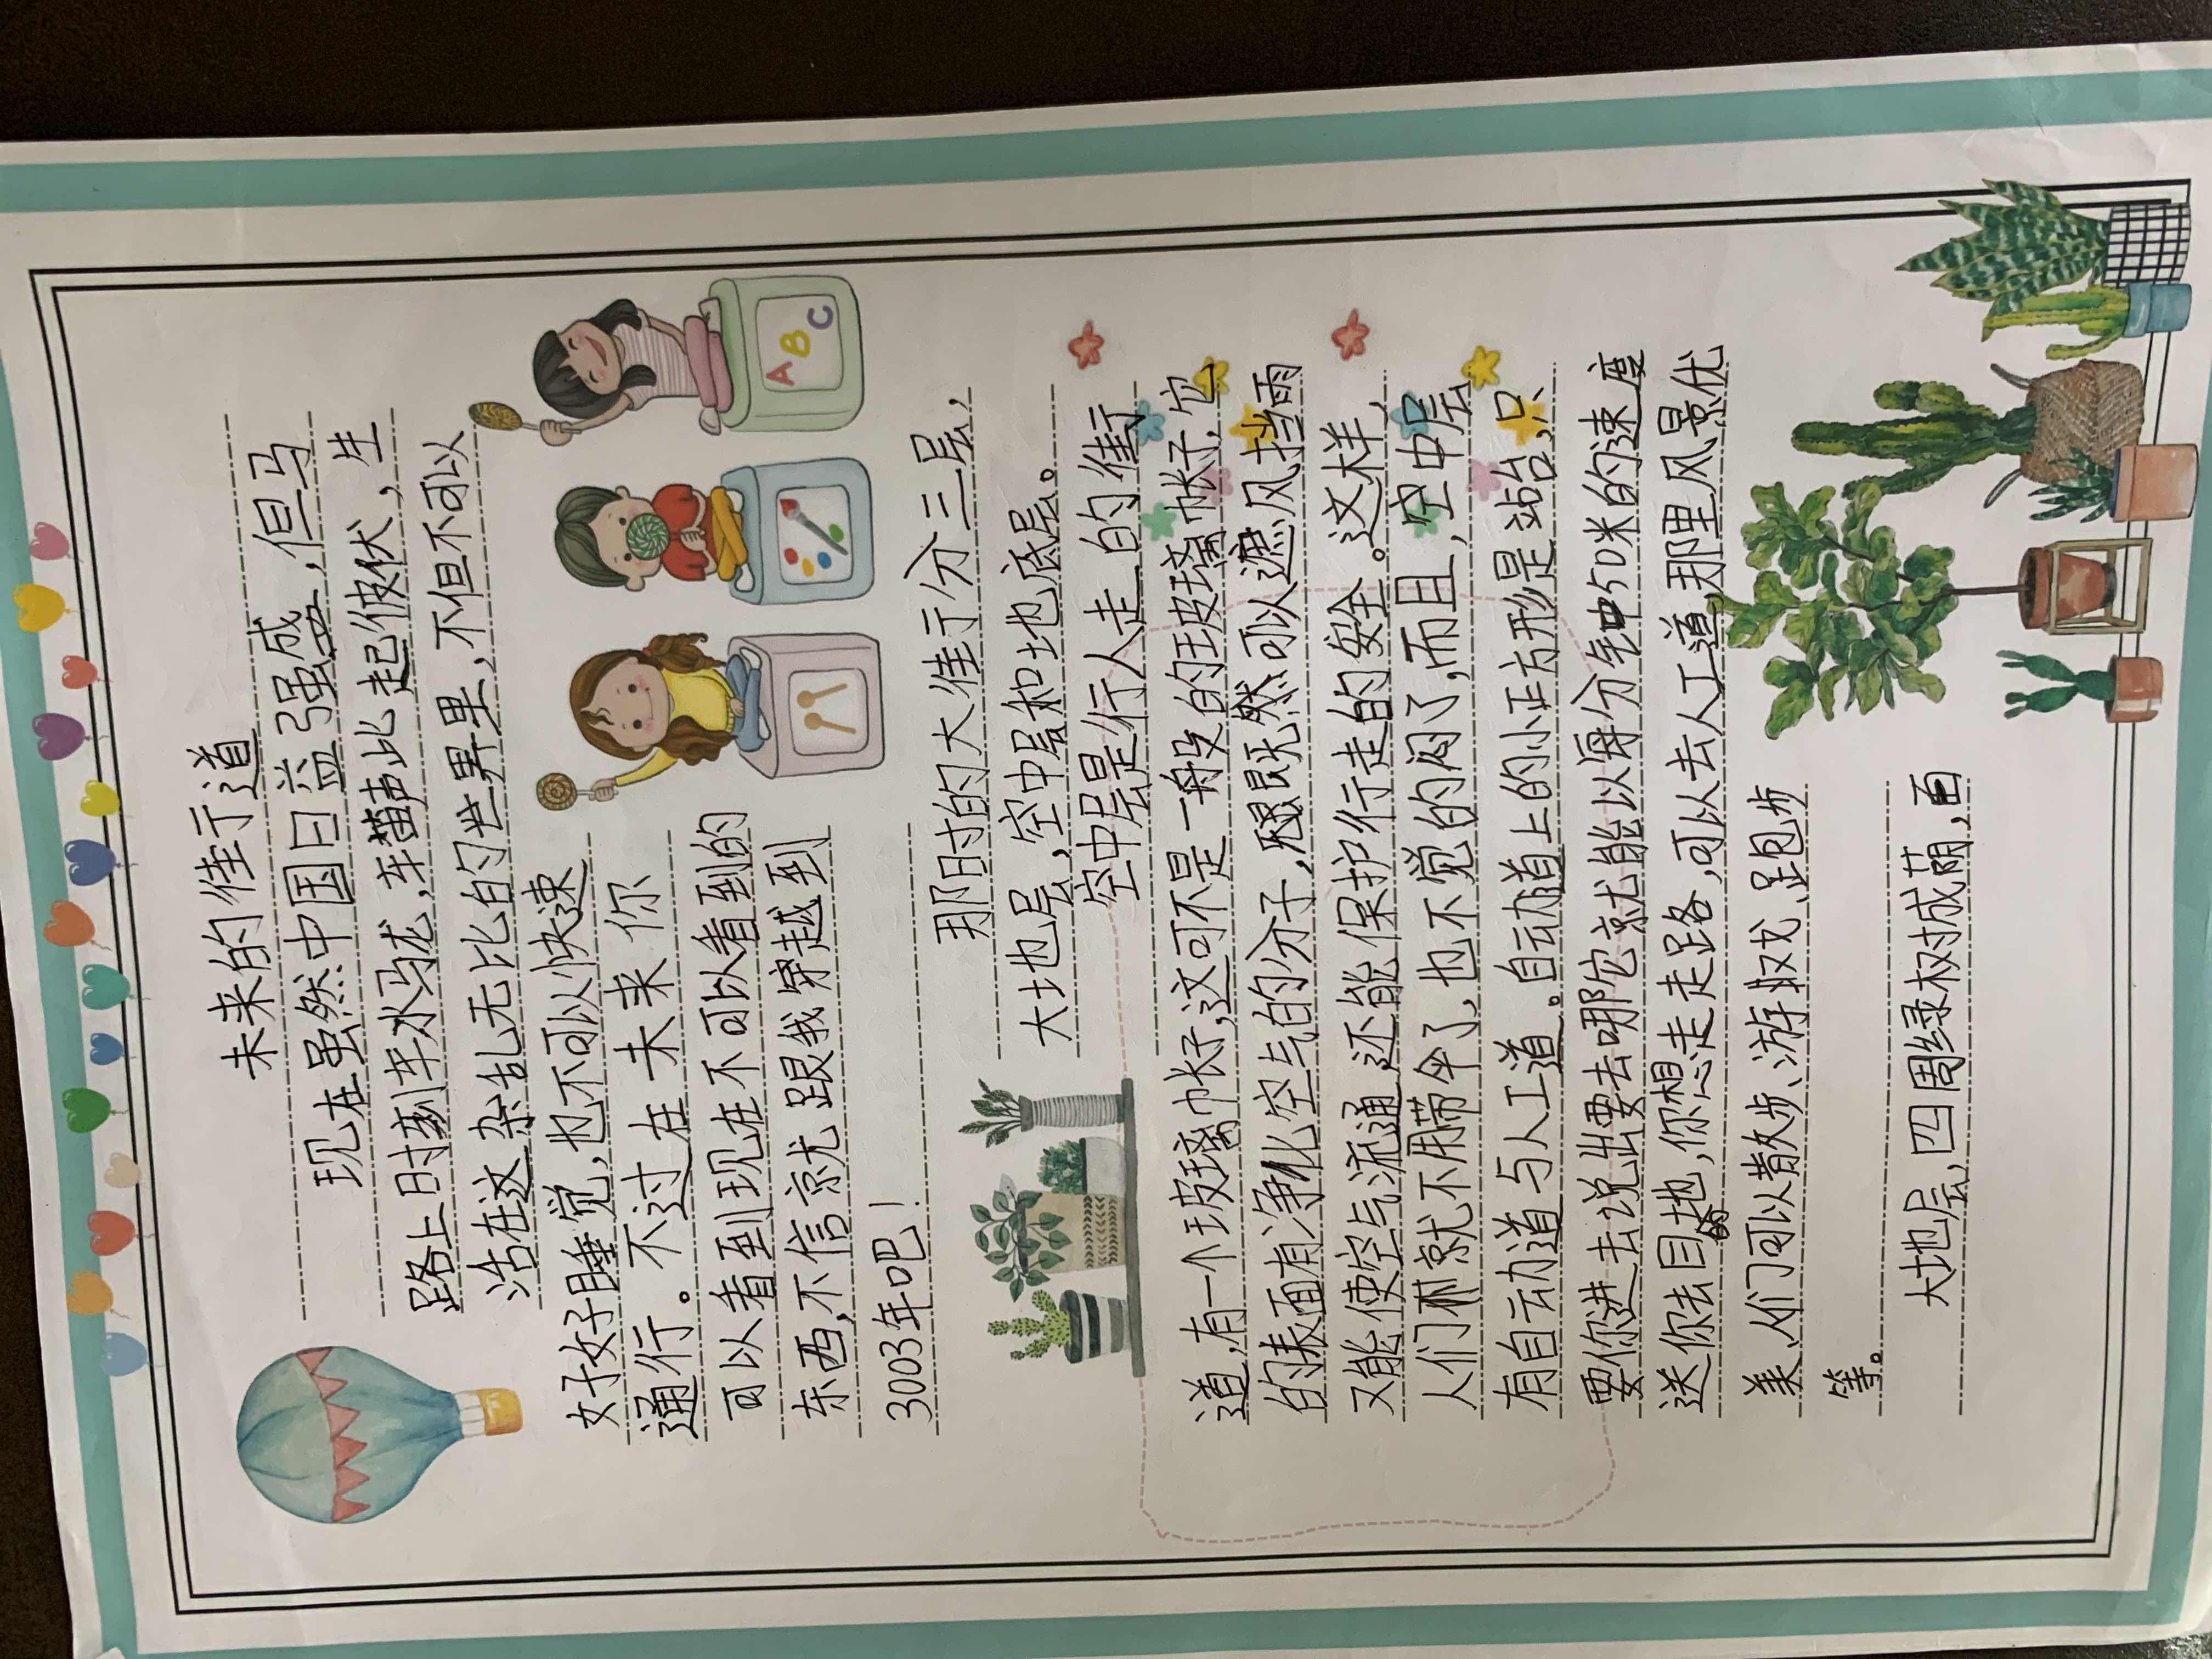 未来的街道
现在虽然中国日益强盛,但马
路上时刻车水马龙,车笛声此起彼伏,生
活在这杂乱无比的世界里,不但不可以
好好睡觉,也不可以快速
通行。不过在未来你
可以看到现在不可以看到的
东西,不信就跟我穿越到
3003年吧!
那时的大街分三层,
大地层,空中层和地底层。
空中层是行人走的街
道,有一个玻璃帐子,这可不是一般的玻璃帐子,它
的表面有净化空气的分子,既然可以遮风挡雨
又能使空气流通还能保护行走的安全。这样,
人们就不用带伞了,也不觉的闷了,而且,空中层
有自动道与人工道。自动道上的小正方形是站台,只
要你进去说出要去哪它就能以每分钟50米的速度
送你去目的地,你想走走路,可以去人工道,那里风景优
美,人们可以散步、游戏、跑步
等。
大地层,四周绿树成荫,面
A B C